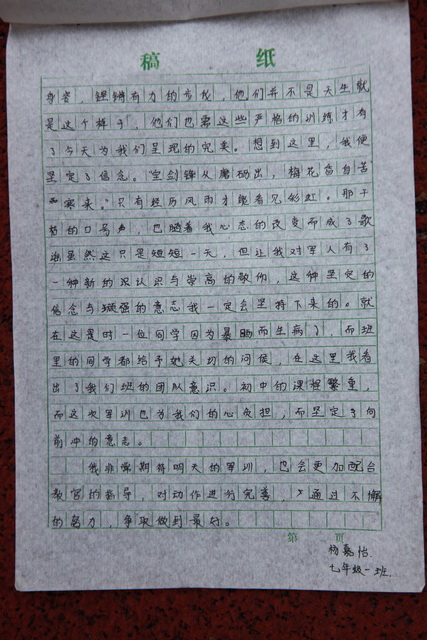 稿 纸
身姿，铿锵有力的步伐，他们并不是天生就
是这个样子，他们也靠这些严格的训练才有
了今天为我们呈现的完美。想到这里，我便
坚定了信念。“宝剑锋从磨砺出，梅花香自苦
寒来。”只有经历风雨才能看见彩虹。那干
的口号声，也随着我心态的改变而成了歌
虽然这只是短短一天，但让我对军人有了
一种新的认识与崇高的敬佩，这种坚定的
信念与顽强的意志我一定会坚持下来的。就
在这是时一位同学因为暴晒而生病了，而班
里的同学都给予她关切的问候，在这里我看
出了我们班的团队意识。初中的课程繁重，
而这次军训也为我们的心负担，而坚定了向
前冲的意志。
我非常期待明天的军训，也会更加配合
教官的指导，对动作进行完善，通过不懈
的努力，争取做到最好。
第 页
杨嘉怡
七年级一班.